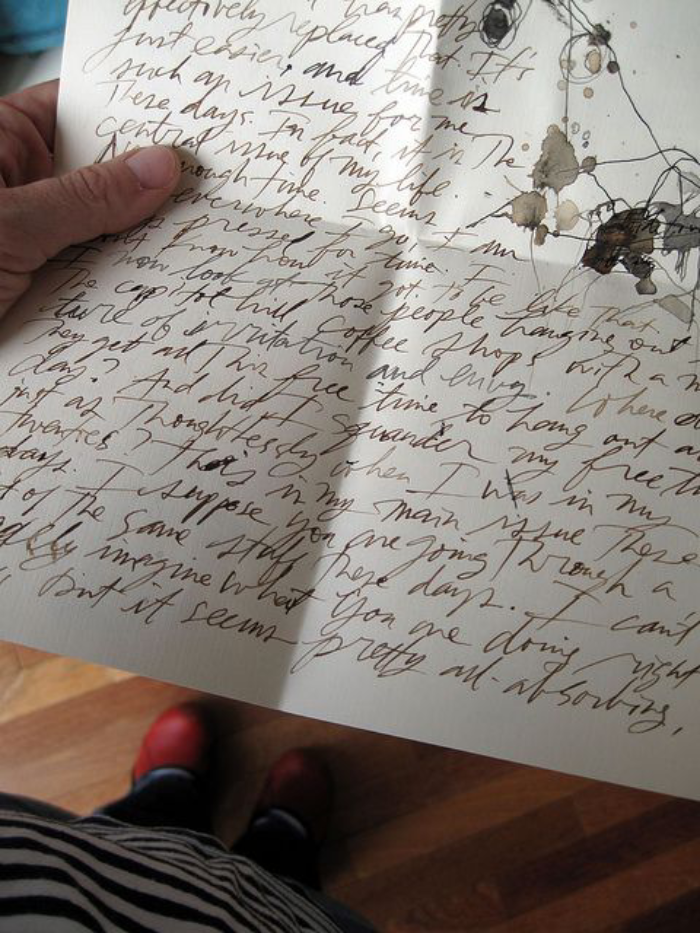 pretty
effectively replaced that. It's
just easier, and time is
such an issue for me
These days. In fact, it is The
central issue of my life.
enough time. Seems
everywhere I go, I am
pressed for time. I
know how it got to be like that.
I now look at those people hanging out
The capitol hill coffee shops with a
ture of irritation and envy. Where do
They get all This free time to hang out
day? And did I squander my free
just as Thoughtlessly when I was in my
twenties? This is my main issue These
days. I suppose you are going Through a
of the same stuff these days. I can't
imagine what you are doing right
but it seems pretty all-absorbing,